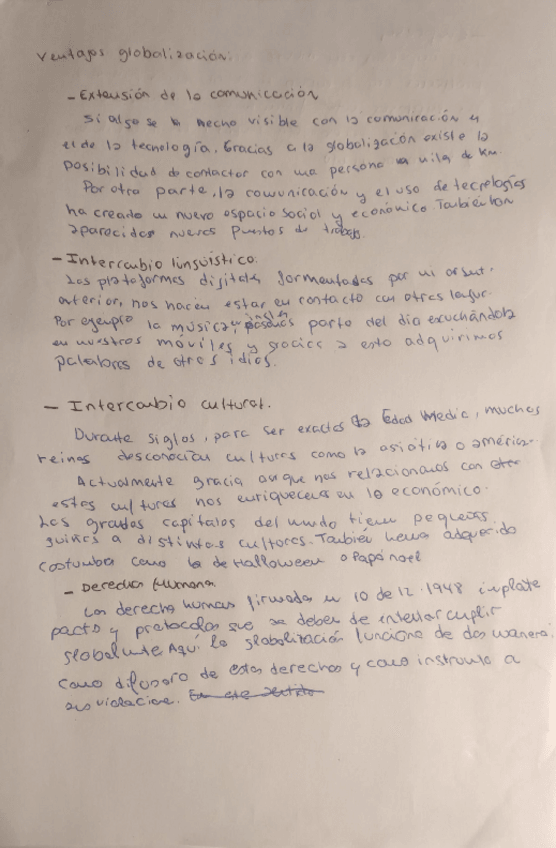 Ventajas globalización.
- Extensión de la comunicación
Si algo se a hecho visible con la comunicación y
el de la tecnología. Gracias a la globalización existe la
posibilidad de contactar con una persona a de km.
Por otra parte, la comunicación y el uso de tecnologías
ha creado un nuevo espacio social y económico También han
aparecidos nuevos puestos de trabajo
- Intercambio lingüístico.
Las plataformas digitales por un
anterior, nos hacen estar en contacto con otras
Por ejemplo la música, parte del día escuchándola
en nuestros móviles y gracias a esto adquirimos
palabras de otros
- Intercambio cultural.
Durante siglos, para ser exactos la Edad Media, muchos
reinos desconocían culturas como la asiática o
Actualmente gracia aunque nos relacionamos con
estas culturas nos enriquecen en lo económico.
Las grandes capitales del mundo tienen pequeños
a distintas culturas. También hemos adquerido
costumbre como la de Halloween o Papá noel
- Derechos Humanos
Los derechos humanos firmados en 10 de 12. 1948
pacto y protocolos que se deben de cumplir
globalmente Aquí la globalización funciona de dos manera:
como de estos derechos y como a